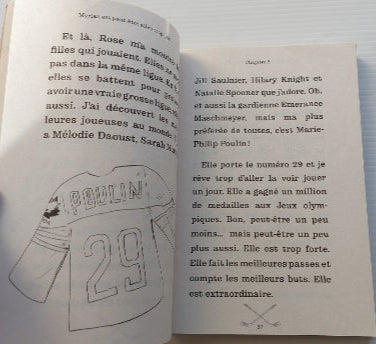 Et là, Rose m'a
filles qui jouaient. Elles
pas dans la même ligue.
elles se battent pour
avoir une vraie grosse ligue
aussi. J'ai découvert les
leures joueuses au monde
a Mélodie Daoust, Sarah
POULIN
29
Chapitre
Jill Saulnier, Hilary Knight et
Natalie Spooner que j'adore. Oh,
et aussi la gardienne Emerance
Maschmeyer, mais ma plus
préférée de toutes, c'est Marie-
Philip Poulin!
Elle porte le numéro 29 et je
rêve trop d'aller la voir jouer
un jour. Elle a gagné un million
de médailles aux Jeux olym-
piques. Bon, peut-être un peu
moins... mais peut-être un peu
plus aussi. Elle est trop forte.
Elle fait les meilleures passes et
compte les meilleurs buts. Elle
est extraordinaire.